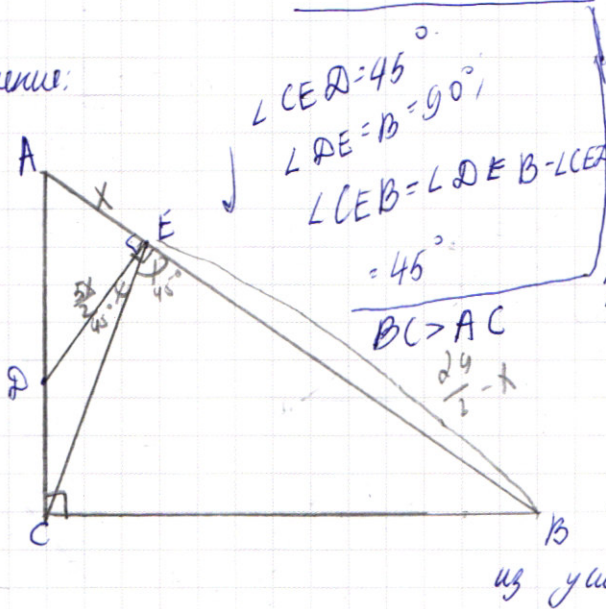 ение:
∠CED=45°
∠DE=B=90°;
∠CEB=∠DEB-∠CED
=45°
BC>AC
A
x
E
45°
45°
D
24/2 - x
C
B
из усл